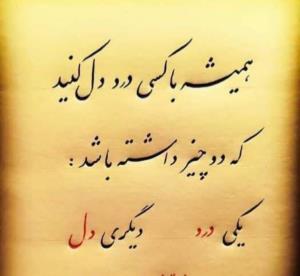 همیشه با کسی درد دل کنید
که دو چیز داشته باشد :
یکی درد دیگری دل